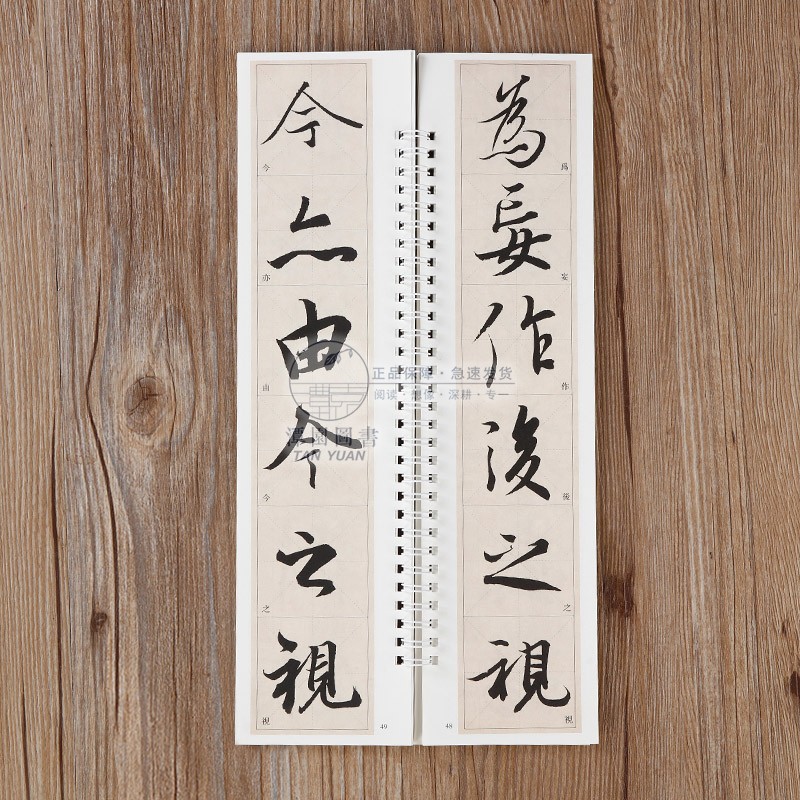 為妄作後之視
爲妄作後之視
48
今亦由今之視
今亦由今之視
49
正品保障·急速发货
阅读·想像·深耕·专一
潭園圖書
TAN YUAN